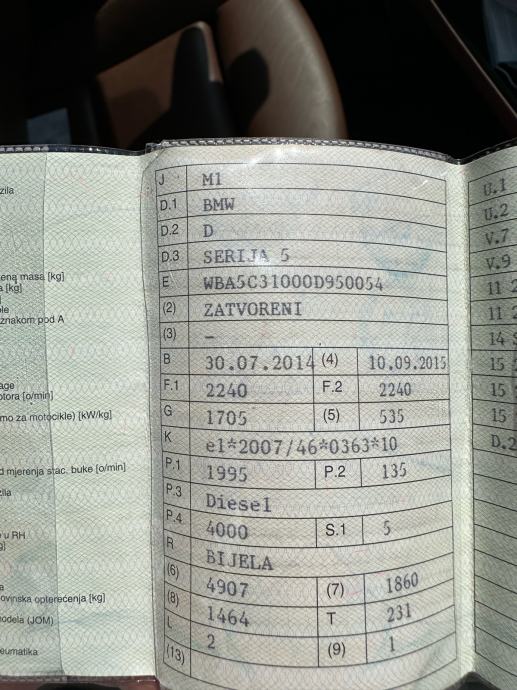 zila
eną masa [kg]
a [kg]
ole
znakom pod A
age
otora [o/min]
mo za motocikle) [kW/kg]
d mjerenja stac. buke [o/min]
zila
e u RH
g]
a
ovinska opterećenja [kg]
modela (JOM)
neumatika
J M1
D.1 BMW
D.2 D
D.3 SERIJA 5
E WBA5C31000D950054
(2) ZATVORENI
(3) –
B 30.07.2014 (4) 10.09.2015
F.1 2240 F.2 2240
G 1705 (5) 535
K e1*2007/46*0363*10
P.1 1995 P.2 135
P.3 Diesel
P.4 4000 S.1 5
R BIJELA
(6) 4907 (7) 1860
(8) 1464 T 231
L 2 (9) 1
(13)
U.1
U.2
V.7
V.9
11 2
11 2
14
15
15
15
D.2